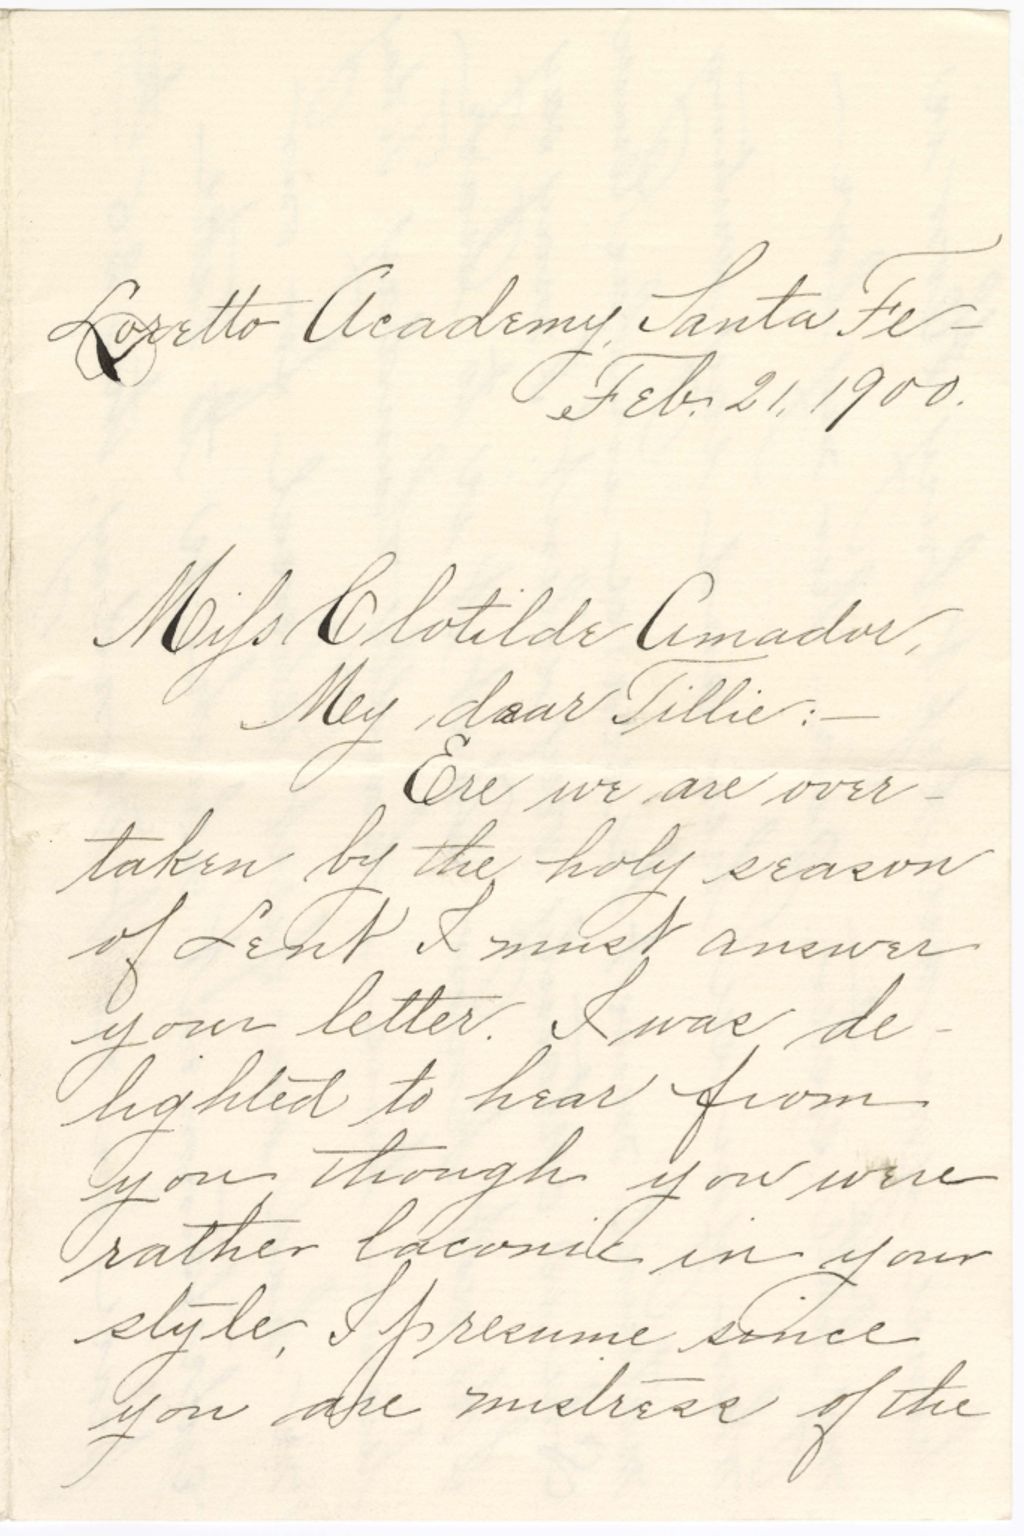 Loretto Academy, Santa Fe –
Feb. 21, 1900.
Miss Clotilde Amador,
My dear Tillie: –
Ere we are over-
taken by the holy season
of Lent I must answer
your letter. I was de-
lighted to hear from
you though you were
rather laconic in your
style, I presume since
you are mistress of the